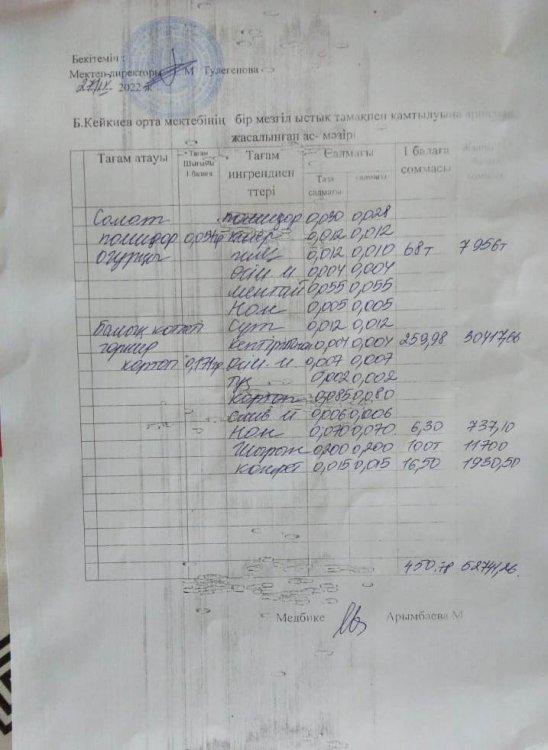 Бекітемін :
Мектеп директоры М Тулегенова
2022 г.
Б.Кейкиев орта мектебінің бір мезгіл ыстық тамақпен қамтылуына арналып
жасалынған ас- мәзірі
Тағам атауы Тағам Шығымы 1 балаға Тағам ингрендиенттері Салмағы 1 балаға соммасы
Таза салмағы салмағы
Салат помидор 0,030 0,028
помидор киер 0,012 0,012
огурцы пияз 0,012 0,010 68т 7956т
өсім м 0,004 0,004
ментай 0,055 0,055
Нан 0,005 0,005
Балық котлеті Сүт 0,012 0,012
гарнир кептірілген 0,004 0,004 259,98 30417,66
картоп 0,171гр өсім. м 0,007 0,007
тұз 0,002 0,002
Картоп 0,085 0,080
слив м 0,006 0,006
Нан 0,070 0,070 6,30 737,10
Шырын 0,200 0,200 100т 11700
конфет 0,015 0,015 16,50 1930,50
450.78 52741,26.
Медбике Арымбаева М